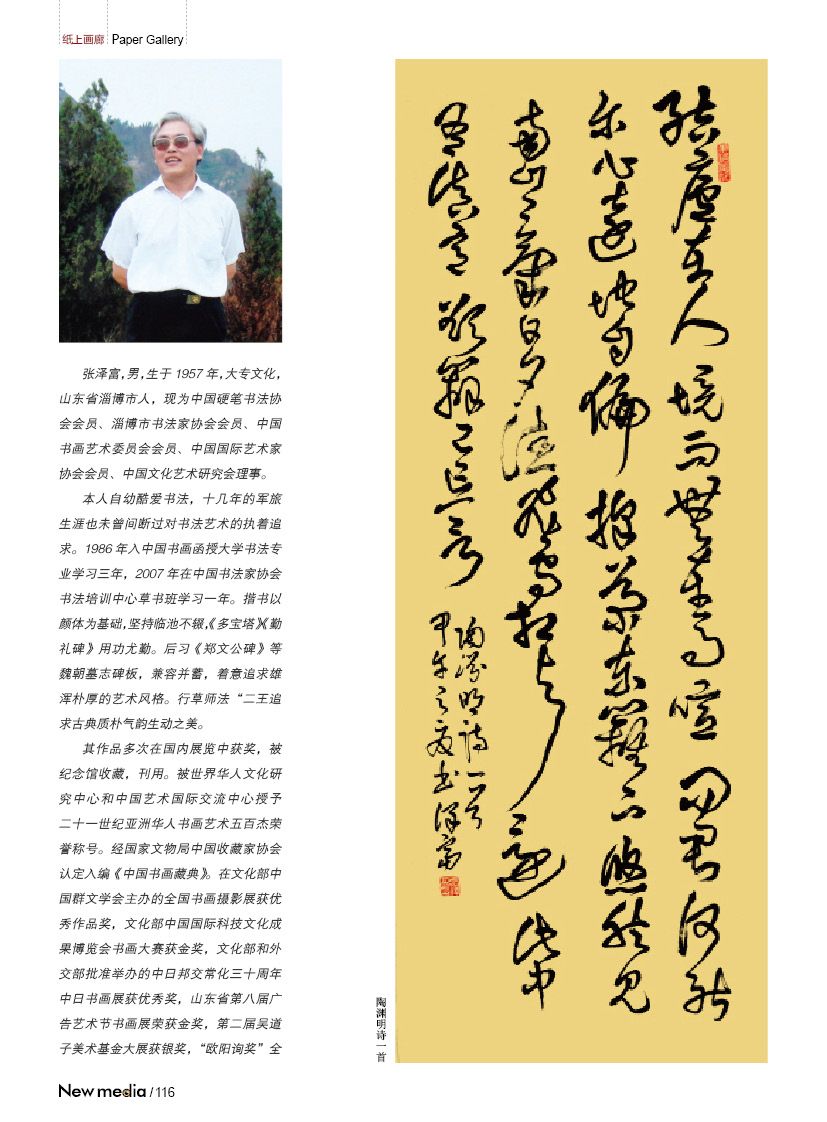 纸上画廊 Paper Gallery
张泽富,男,生于 1957 年,大专文化,
山东省淄博市人，现为中国硬笔书法协
会会员、淄博市书法家协会会员、中国
书画艺术委员会会员、中国国际艺术家
协会会员、中国文化艺术研究会理事。
本人自幼酷爱书法，十几年的军旅
生涯也未曾间断过对书法艺术的执着追
求。1986 年入中国书画函授大学书法专
业学习三年，2007 年在中国书法家协会
书法培训中心草书班学习一年。揩书以
颜体为基础,坚持临池不辍,《多宝塔》《勤
礼碑》用功尤勤。后习《郑文公碑》等
魏朝墓志碑板，兼容并蓄，着意追求雄
浑朴厚的艺术风格。行草师法“二王追
求古典质朴气韵生动之美。
其作品多次在国内展览中获奖，被
纪念馆收藏，刊用。被世界华人文化研
究中心和中国艺术国际交流中心授予
二十一世纪亚洲华人书画艺术五百杰荣
誉称号。经国家文物局中国收藏家协会
认定入编《中国书画藏典》。在文化部中
国群文学会主办的全国书画摄影展获优
秀作品奖，文化部中国国际科技文化成
果博览会书画大赛获金奖，文化部和外
交部批准举办的中日邦交常化三十周年
中日书画展获优秀奖，山东省第八届广
告艺术节书画展荣获金奖，第二届吴道
子美术基金大展获银奖，“欧阳询奖”全
結廬在人境而無車馬喧問君何能
尔心遠地自偏採菊東籬下悠然見
南山々氣日夕佳飛鳥相与還此中
有真意欲辯已忘言
陶淵明詩一首
甲午之夏書澤富
陶渊明诗一首
New media / 116